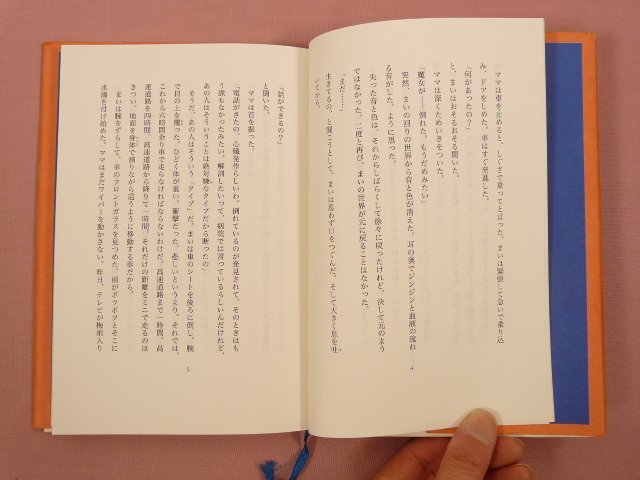 ママは車を止めると、しぐさで乗ってと言った。まいは緊張して急いで乗り込
み、ドアをしめた。車はすぐ発進した。
「何があったの？」
と、まいはおそるおそる聞いた。
ママは深くためいきをついた。
「魔女が――倒れた。もうだめみたい」
突然、まいの回りの世界から音と色が消えた。耳の奥でジンジンと血液の流れ
る音がした、ように思った。
失った音と色は、それからしばらくして徐々に戻ったけれど、決して元のよう
ではなかった。二度と再び、まいの世界が元に戻ることはなかった。
「まだ……」
生きてるの、と聞こうとして、まいは思わず口をつぐんだ。そして大きく息を吐
いてから、
4
「話ができるの？」
と聞いた。
ママは首を振った。
「電話がきたの。心臓発作らしいわ。倒れているのが発見されて、そのときはも
う脈もなかったみたい。解剖したいって、病院では言っているらしいんだけれど、
あの人はそういうことは絶対嫌なタイプだから断ったの」
そうだ、あの人はそういう「タイプ」だ。まいは車のシートを後ろに倒し、腕
で目の上を覆った。ひどく体が重い。衝撃だった。悲しいというより。それでは、
これから六時間余り車で走らなければならないわけだ。高速道路まで一時間、高
速道路を四時間、高速道路から降りて一時間。それだけの距離をミニで走るのは
きつい。地面を身体で測りながら這うように移動する車だから。
まいは腕をずらして、車のフロントガラスを見つめた。雨がポツポツとそこに
水滴を付け始めた。ママはまだワイパーを動かさない。昨日、テレビが梅雨入り
5